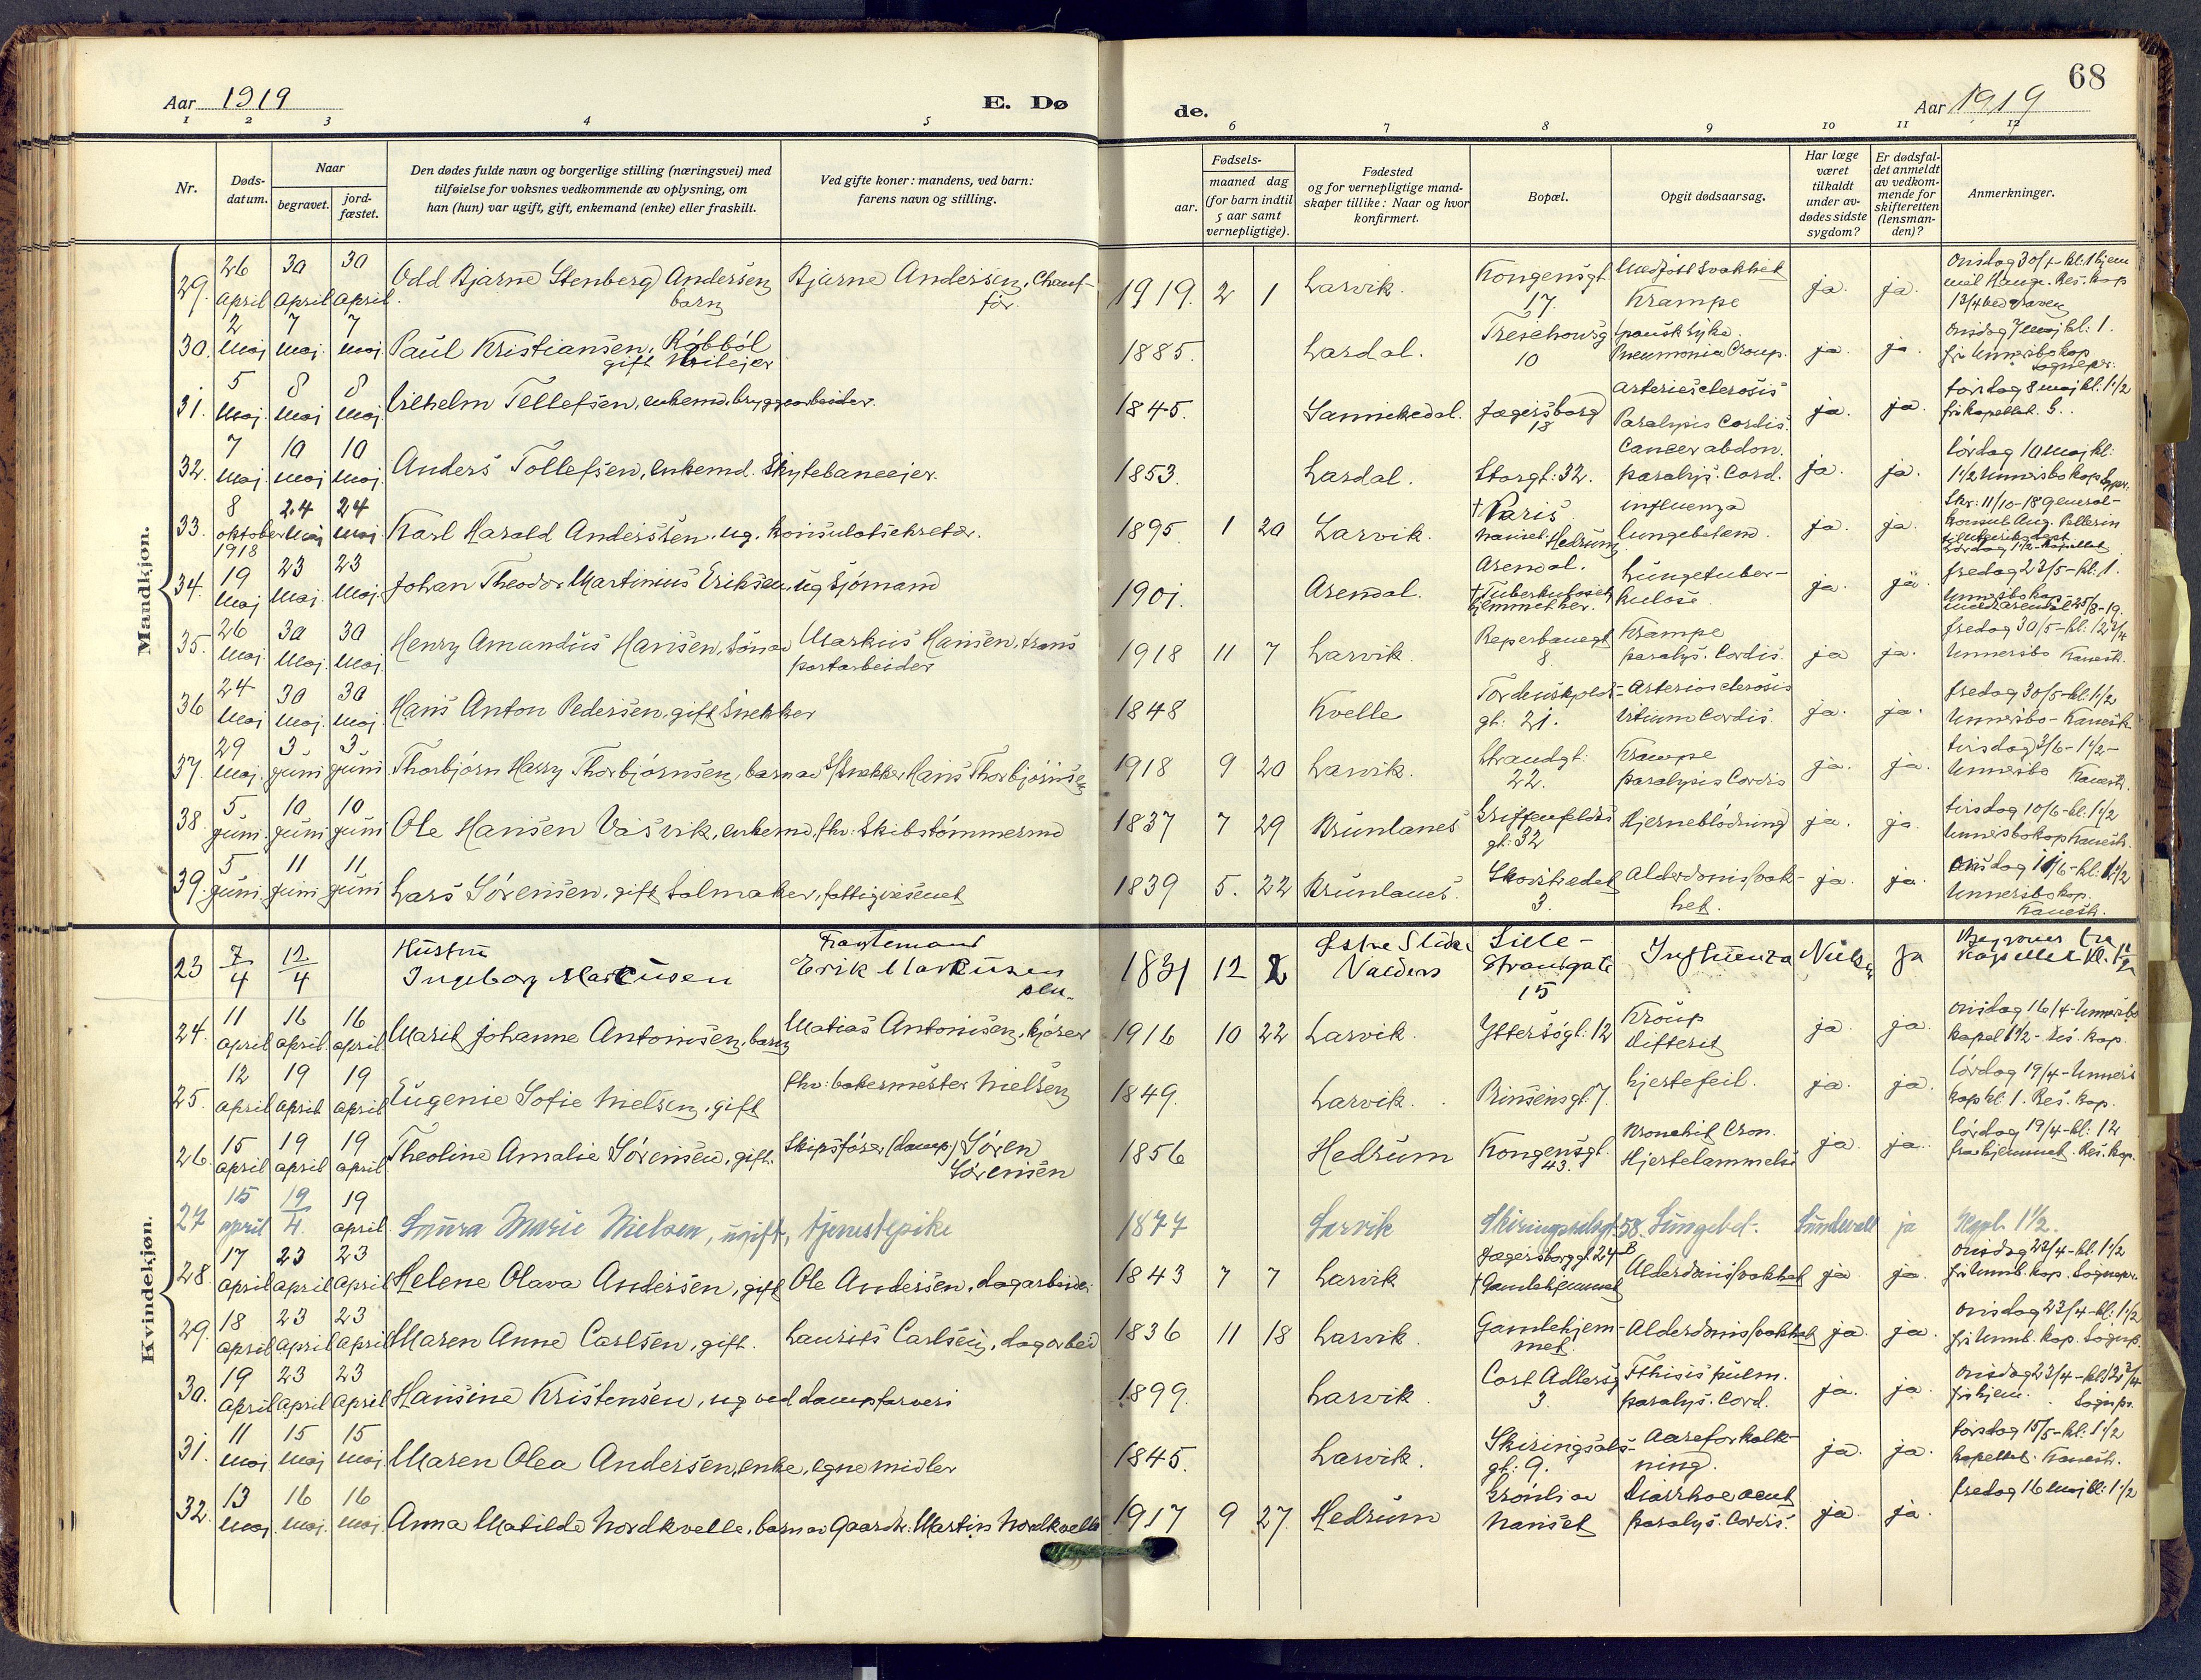 68
Aar 1919
E. Dø
de.
Aar 1919
1 2 3 4 5 6 7 8 9 10 11 12
Nr.
Døds-
datum.
Naar
begravet.
jord-
fæstet.
Den dødes fulde navn og borgerlige stilling (næringsvei) med
tilføielse for voksnes vedkommende av oplysning, om
han (hun) var ugift, gift, enkemand (enke) eller fraskilt.
Ved gifte koner: mandens, ved barn:
farens navn og stilling.
Fødsels-
aar.
maaned dag
(for barn indtil
5 aar samt
vernepligtige).
Fødested
og for vernepligtige mand-
skaper tillike: Naar og hvor
konfirmert.
Bopæl.
Opgit dødsaarsag.
Har læge
været
tilkaldt
under av-
dødes sidste
sygdom?
Er dødsfal-
det anmeldt
av vedkom-
mende for
skifteretten
(lensman-
den)?
Anmerkninger.
Mandkjøn.
29. 26 april 30 april 30 april. Odd Bjarne Stenberg Andersen barn Bjarne Andersen, Chauf-
før. 1919. 2 1 Larvik. Kongensgt. 17. Medfødt Svakhet Krampe ja. ja. Onsdag 30/4 kl. 1 hjem
30. 2 maj 7 maj. 7 maj. Paul Kristiansen, gift 1885. Lardal. 10 spansk syke. Pneumonia Croup. ja. ja. Onsdag 7 maj kl: 1.
31. 5 maj. 8 maj 8 maj. Vilhelm Tellefsen, enkemd. bryggearbeider. 1845. Sannikedal. Jægersborg 18 arteriesclerosis Paralysis Cordis. ja. ja. torsdag 8 maj kl. 1 1/2
fr. kapellet.
32. 7 maj. 10 maj 10 maj. Anders Tollefsen, enkemd. Skytebaneeier. 1853. Lardal. Storgt: 32. Cancer abdom. paralys. Cord. ja. ja. lørdag 10 maj kl:
33. 8 oktober 1918 24 maj 24 maj. Karl Harald Anderssen, ug. konsulatsekretær. 1895. 1 20 Larvik. † Paris Nanset. Hedrum. influenza lungebetend. ja. ja. Skr: 11/10-18 general-
konsul Aug. Pellerin
34. 19 maj 23 maj. 23 maj. Johan Theodor Martinius Eriksen, ug sjømand 1901. Arendal. Arendal. † Tuberkulose hjemmet her. Lungetuber-
kulose. ja. ja. fredag 23/5 - kl. 1.
35. 26 maj. 30 maj. 30 maj. Henry Amandus Hansen, søn av Markus Hansen, trans
portarbeider 1918 11 7 Larvik. Reperbanegt 8. Krampe paralys. Cordis. ja ja. fredag 30/5 - kl: 12 3/4
36 24 maj 30 maj. 30 maj. Hans Anton Pedersen, gift Snekker 1848 Kvelle Tordenskjolds-
gt: 21. Arteriosclerosis Vitium Cordis. ja. ja. fredag 30/5 - kl: 1 1/2
37. 29 maj. 3. juni 3. juni Thorbjørn Harry Thorbjørnsen, barn av Snekker Hans Thorbjørnsen 1918 9 20 Larvik. Strandgt: 22. Krampe paralysis Cordis ja. ja. tirsdag 3/6 - 1 1/2 -
38. 5 juni. 10 juni 10 juni Ole Hansen Vasvik, enkemd, fhv: Skibstømmermd 1837 7 29 Brunlanes Griffenfelds gt: 32 Hjerneblødning ja. ja. tirsdag 10/6 - kl. 1 1/2
39. 5 juni. 11 juni 11 juni Lars Sørensen, gift Salmaker, fattigvesenet 1839 5. 22 Brunlanes. 3. Alderdomssvak-
het. ja. ja. Onsdag 11/6 - kl: 1 1/2
Kvindekjøn.
23 7/4 12/4 Hustru
Ingeborg Markusen Fragtemand
Erik Markusen 1831 12 2 Østre Slidre Valders Lille-
Strandgate 15 Influenza ja
24. 11 april 16 april. 16 april. Marit Johanne Antonisen, barn Matias Antonisen, kjører 1916 10 22 Larvik. Yttersøgt: 12 Kroup Difterit ja. ja. onsdag 16/4
kapel 1 1/2 - Res. kap.
25. 12 april 19 april 19 april Eugenie Sofie Nielsen, gift fhv: bakermester Nielsen 1849. Larvik. Prinsensgt. 7. hjertefeil. ja. ja. lørdag 19/4
kap kl 1. Res. kap.
26. 15 april 19 april 19 april Theoline Amalie Sørensen, gift. Skipsfører (damp) Søren
Sørensen 1856 Hedrum Kongensgt. 43. Bronchit Cron. Hjertelammelse ja. ja. lørdag 19/4 - kl. 12
fra hjemmet. Res. kap.
27 15 april 19/4. 19 april. Laura Marie Nielsen, ugift, tjenestepike 1877 Larvik Skiringssalsgt 58. Lungebet. ja Kapl. 1 1/2.
28. 17 april 23 april 23 april Helene Olava Andersen, gift Ole Andersen, dagarbeider 1843 7 7 Larvik Jægersborggt 24 B † Gamlehjemmet Alderdomssvakhet ja. ja. onsdag 23/4 - kl. 1 1/2
29. 18 april 23 april 23 april Maren Anne Carlsen, gift. Laurits Carlsen, dagarbeid 1836 11 18 Larvik. Gamlehjem-
met. Alderdomssvakhet ja. ja. onsdag 23/4 - kl: 1 1/2
30. 19 april 23 april 23 april Hansine Kristensen, ug ved dampfarveri 1899. Larvik. Cort Adlersg 3. Fthisis pulm. paralys. Cord. ja. ja. onsdag 23/4 - kl 12 3/4
31. 11 maj 15 maj 15 maj Maren Olea Andersen, enke, egne midler 1845. Larvik. Skiringsals-
gt: 9. Aareforkalk-
ning. ja. ja. torsdag 15/5 - kl: 1 1/2
32. 13 maj. 16 maj. 16 maj. Anna Matilde Nordkvelle, barn av Gaardbr. Martin Nordkvelle 1917 9 27. Hedrum Grønli av Nanset Diarrhoe acut paralys. Cordis. ja. ja. fredag 16 maj kl: 1 1/2